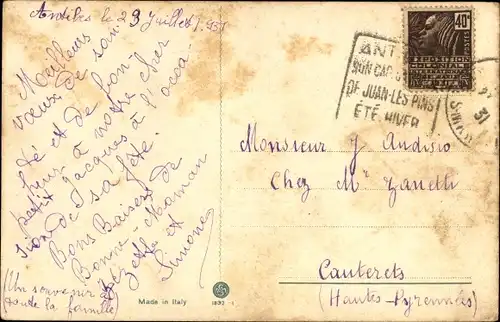 Antibes le 23 Juillet 1931
Meilleurs
vœux de san-
té et de bon-
heur à notre cher
petit Jacques à l'occa-
sion de sa fête.
Bons Baisers de
Bonne-Maman
et
Simone
Un souvenir à
toute la famille
40c
POSTES
ANT
SON CAP
DE JUAN-LES-PINS
ÉTÉ HIVER
31
Monsieur J Audisio
Chez Mr Zanetti
Cauterets
(Hautes-Pyrennées)
Made in Italy